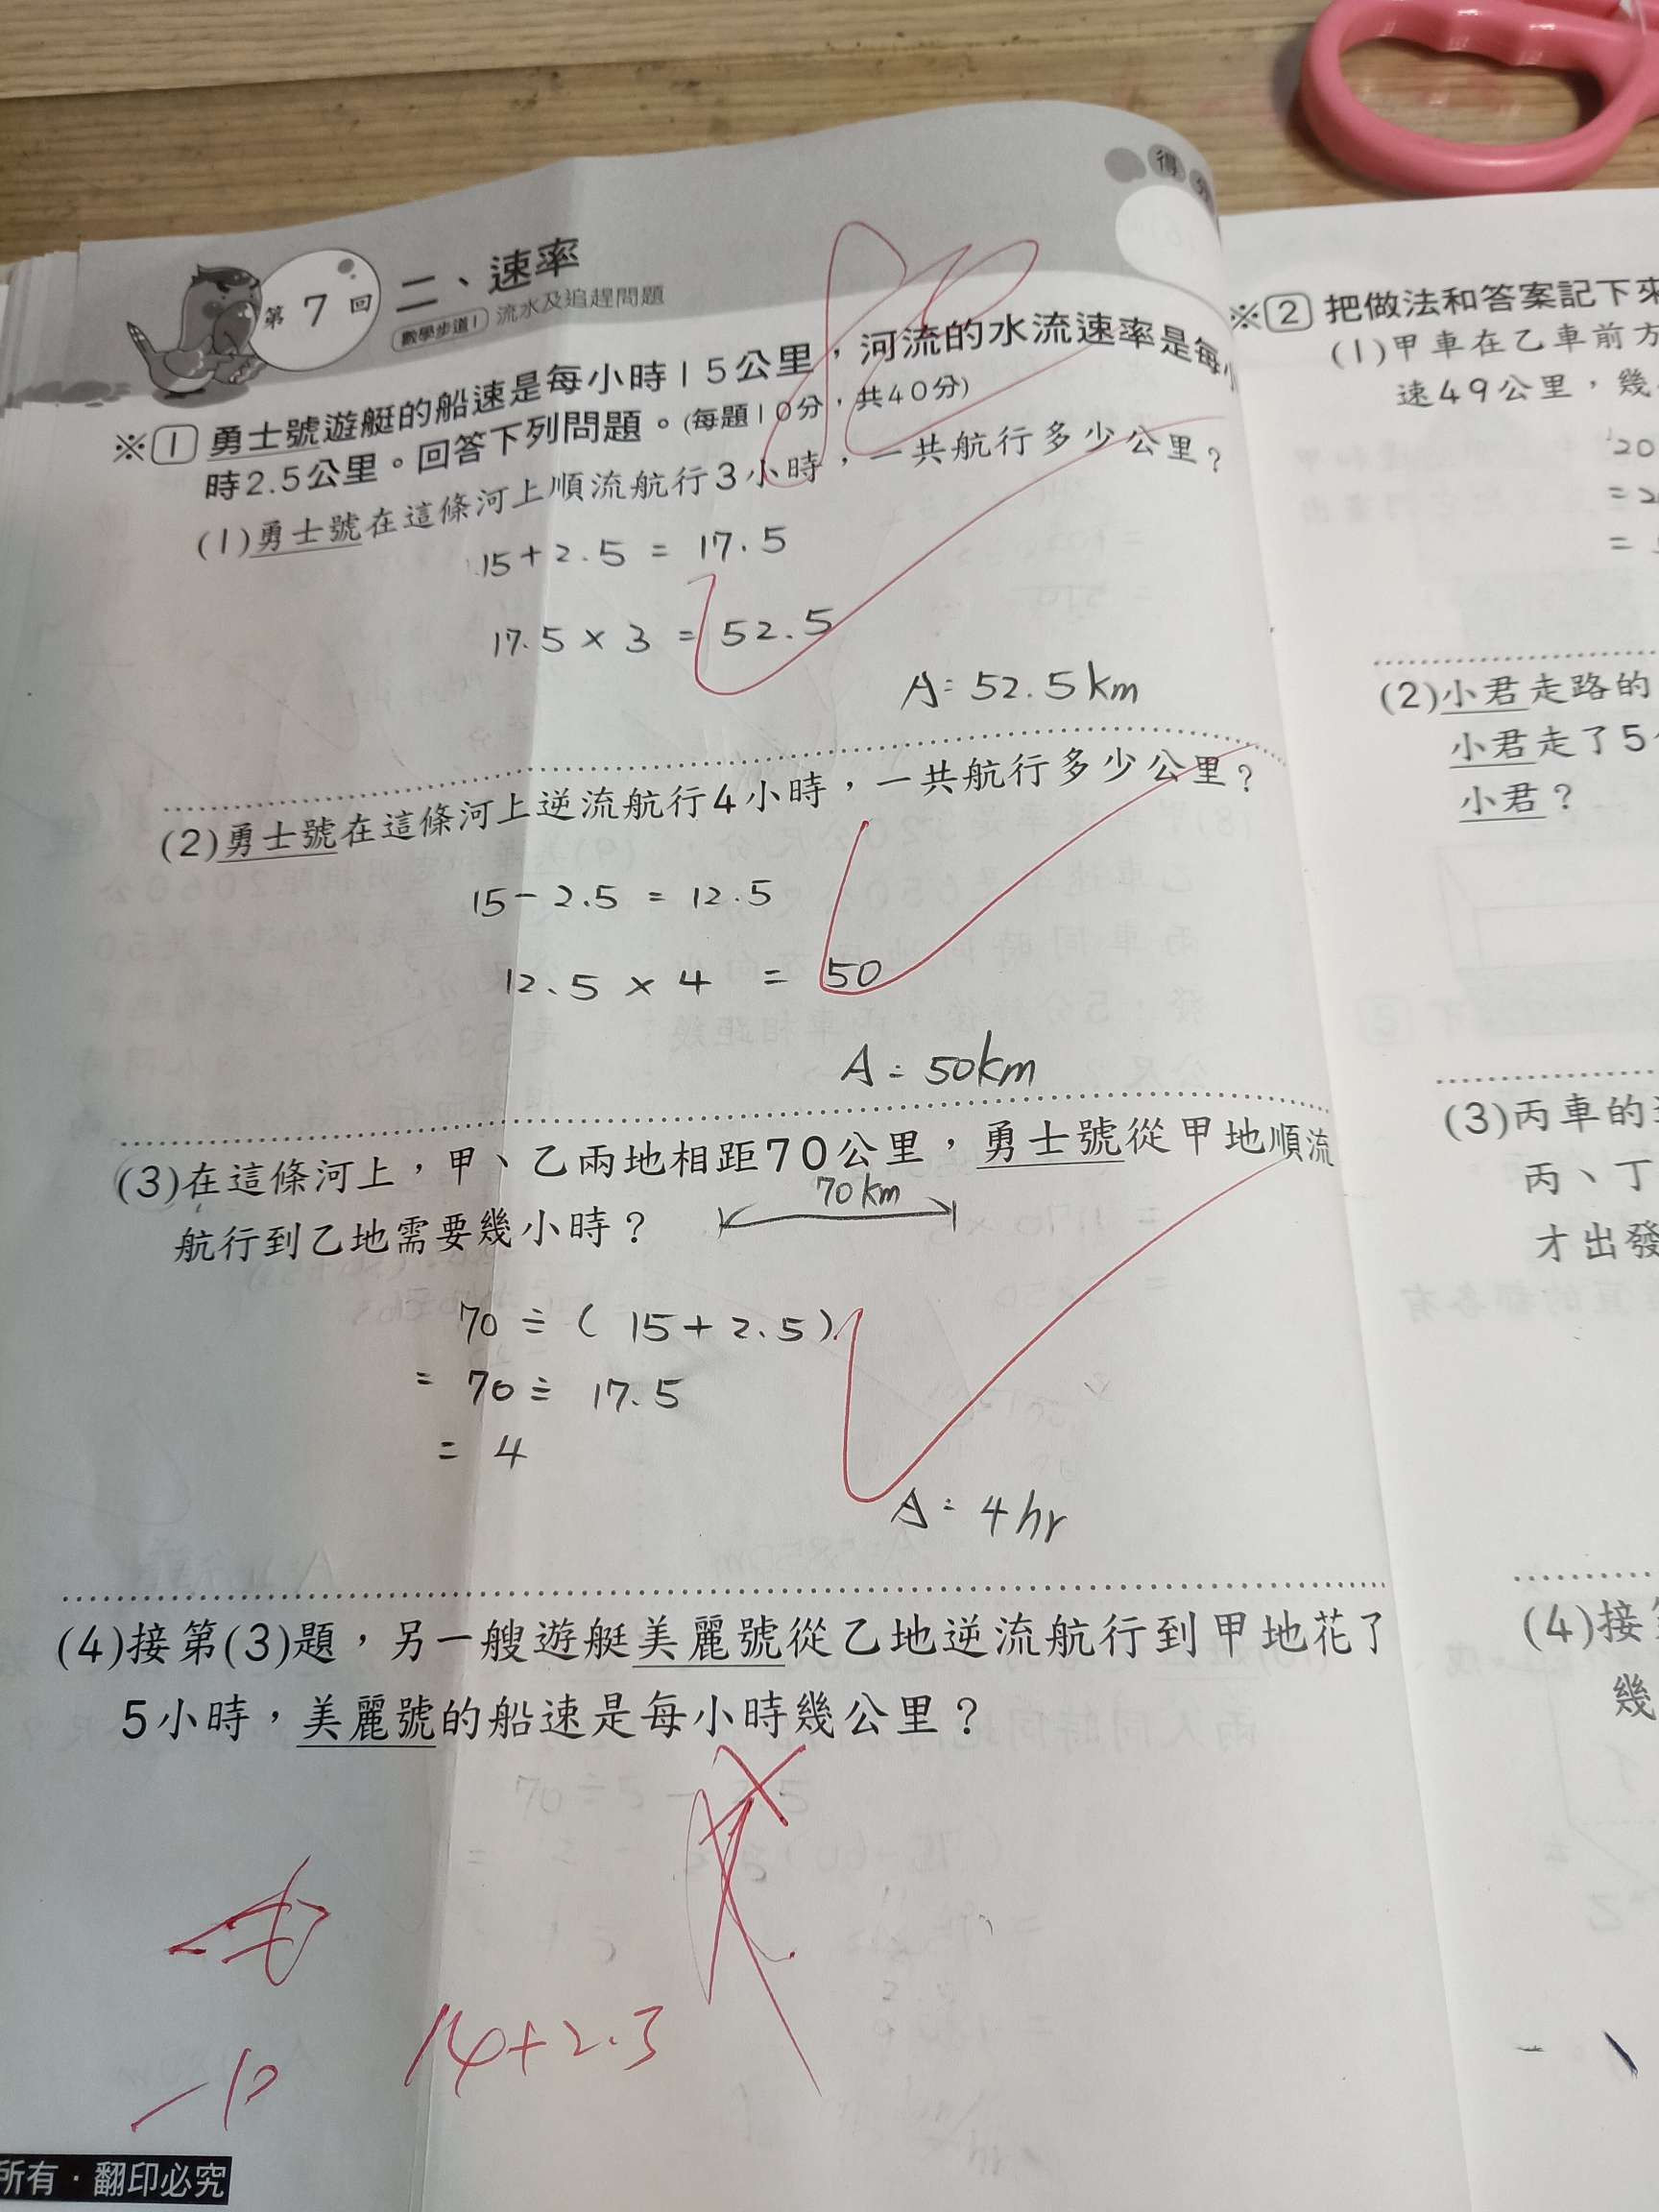 得分
第7回
二、速率
數學步道1 流水及追趕問題
※1 勇士號遊艇的船速是每小時15公里，河流的水流速率是每小
時2.5公里。回答下列問題。(每題10分，共40分)
(1)勇士號在這條河上順流航行3小時，一共航行多少公里？
15+2.5 = 17.5
17.5 × 3 = 52.5
A: 52.5km
(2)勇士號在這條河上逆流航行4小時，一共航行多少公里？
15-2.5 = 12.5
12.5 × 4 = 50
A: 50km
(3)在這條河上，甲、乙兩地相距70公里，勇士號從甲地順流
70km
航行到乙地需要幾小時？
70 ÷ ( 15+2.5)
= 70 ÷ 17.5
= 4
A: 4hr
(4)接第(3)題，另一艘遊艇美麗號從乙地逆流航行到甲地花了
5小時，美麗號的船速是每小時幾公里？
70÷5
14+2.5
-10
所有．翻印必究
※2 把做法和答案記下來
(1)甲車在乙車前方
速49公里，幾
20
=2
=
(2)小君走路的
小君走了5
小君？
(3)丙車的
丙、丁
才出發
(4)接
幾